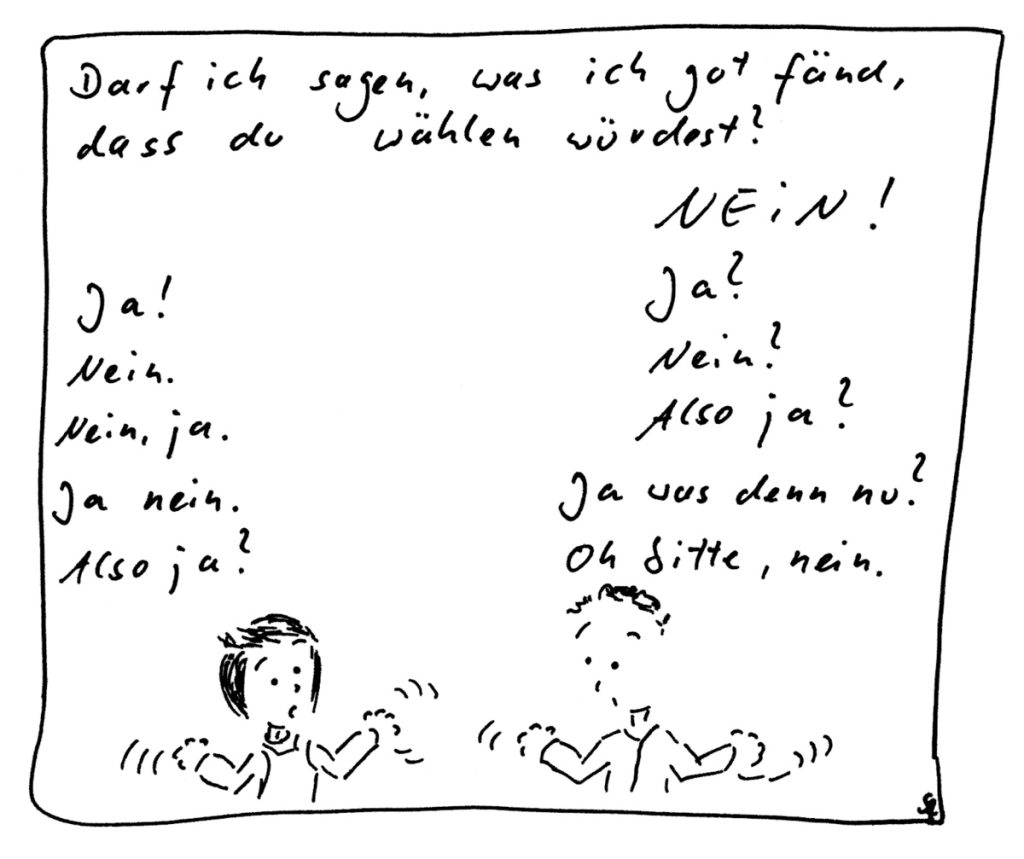 Darf ich sagen, was ich gut fänd,
dass du wählen würdest?
NEiN!
Ja!
Ja?
Nein.
Nein?
Nein, ja.
Also ja?
Ja nein.
Ja was denn nu?
Also ja?
Oh bitte, nein.